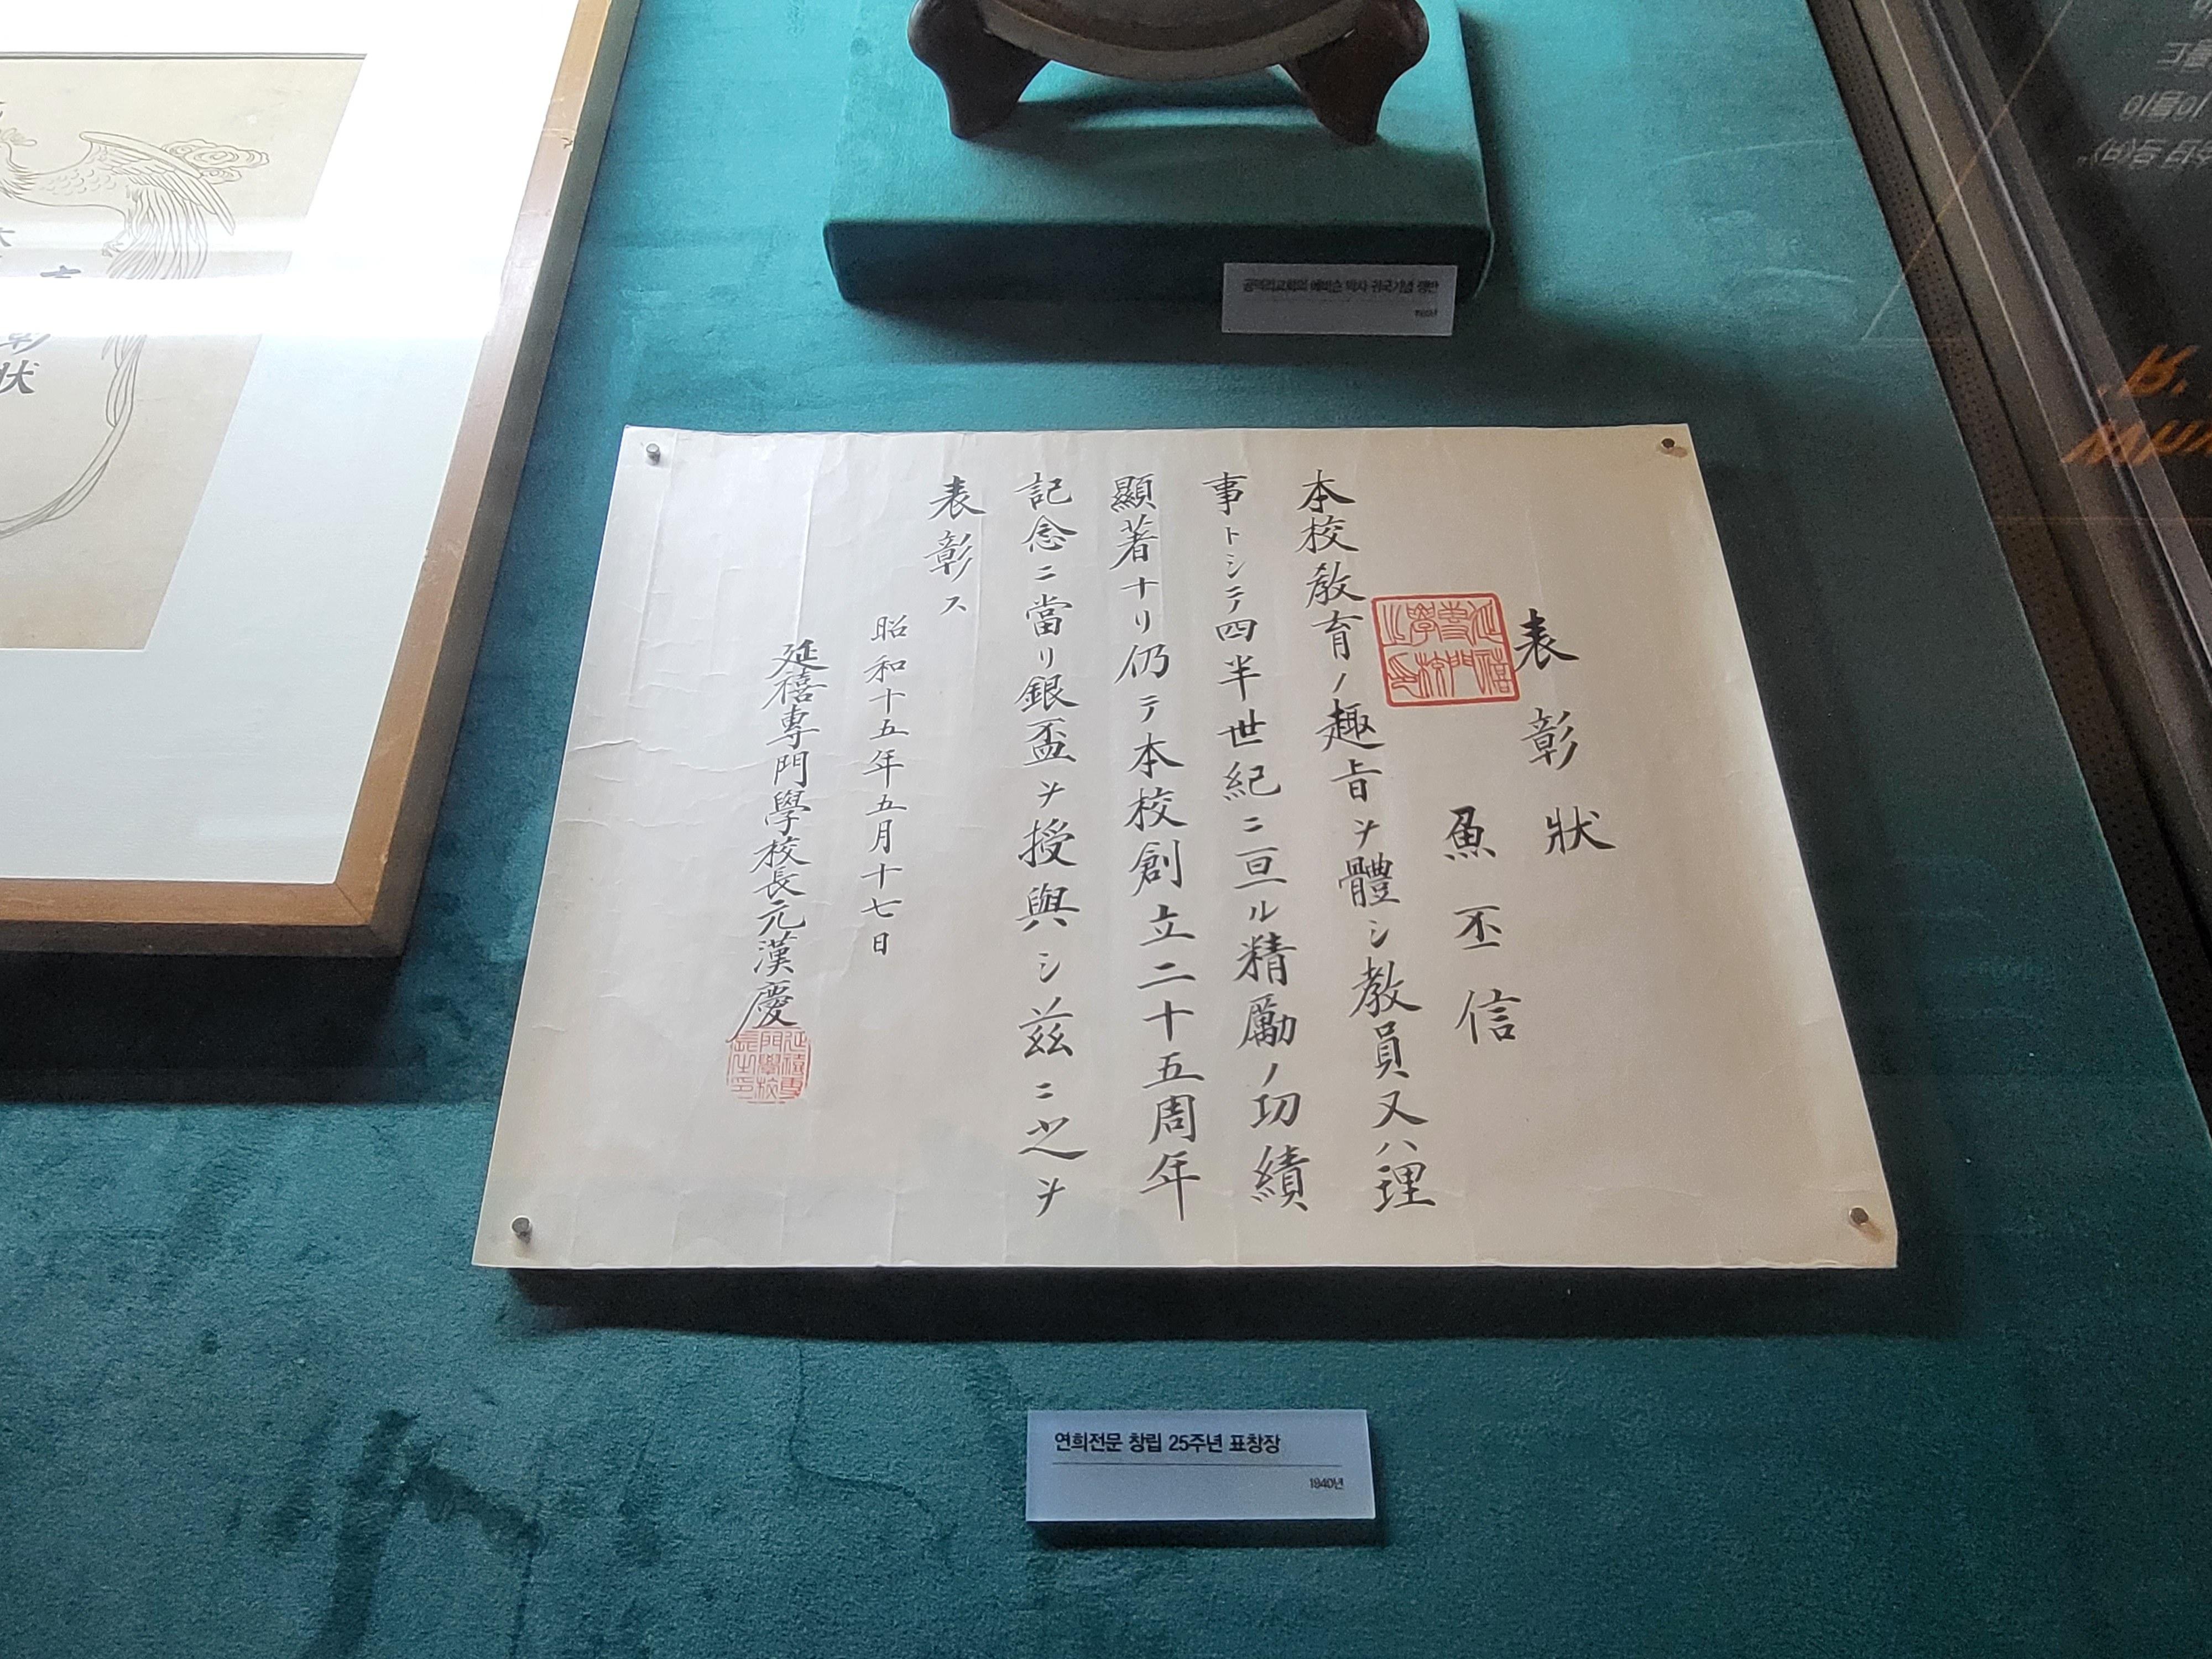 表彰狀
魚丕信
本校教育ノ趣旨ヲ體シ教員又ハ理
事トシテ四半世紀ニ亘ル精勵ノ功績
顯著ナリ仍テ本校創立二十五周年
記念ニ當リ銀盃ヲ授與シ茲ニ之ヲ
表彰ス
昭和十五年五月十七日
延禧專門學校長元漢慶
延禧專門學校之印
延禧專門學校長之印
연희전문 창립 25주년 표창장
1940년
狀